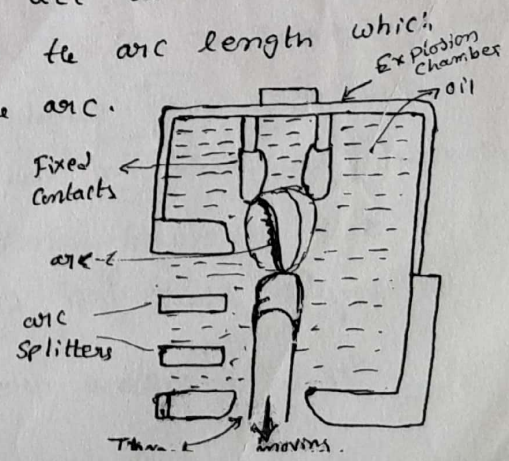 the arc length which
arc.
Explosion
Chamber
oil
Fixed
Contacts
arc
arc
Splitters
moving.